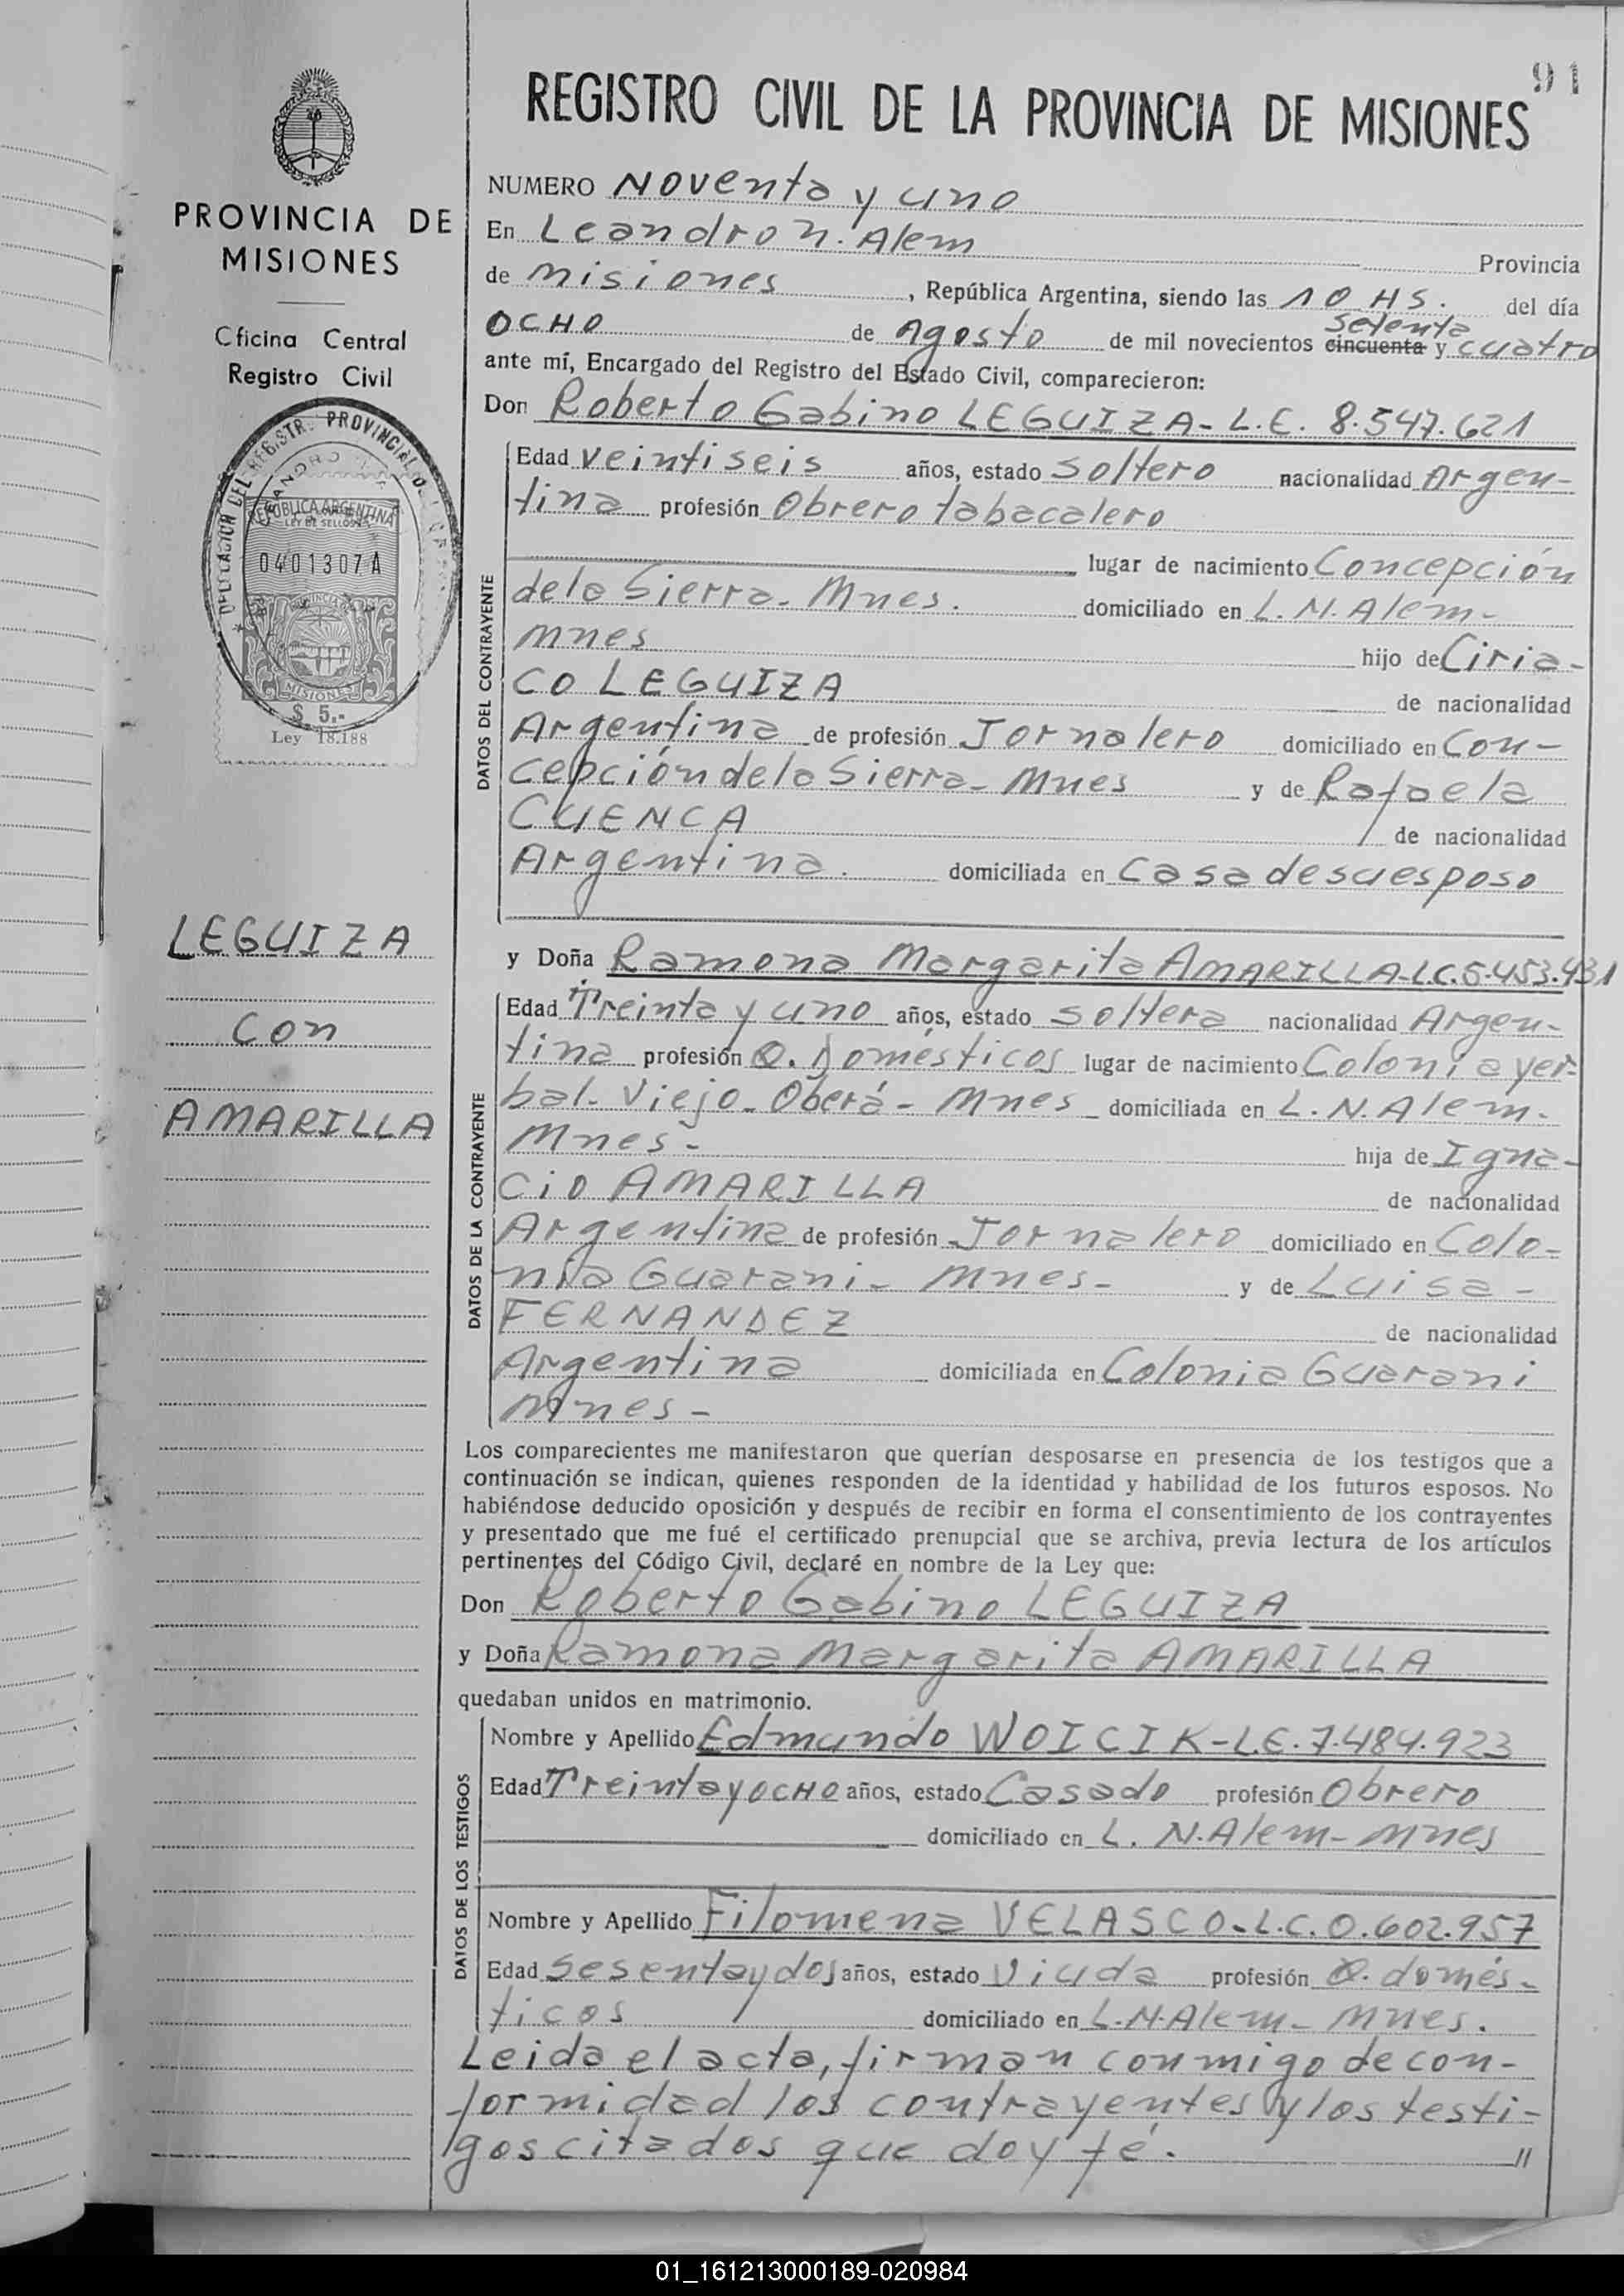 91
REGISTRO CIVIL DE LA PROVINCIA DE MISIONES
PROVINCIA DE
MISIONES
Oficina Central
Registro Civil
REPUBLICA ARGENTINA
LEY DE SELLOS
0401307A
MISIONES
$ 5.-
Ley 18.188
LEGUIZA
con
AMARILLA
NUMERO Noventa y uno
En Leandro N. Alem Provincia
de misiones, República Argentina, siendo las 10 HS. del día
OCHO de Agosto de mil novecientos cincuenta setenta y cuatro
ante mí, Encargado del Registro del Estado Civil, comparecieron:
Don Roberto Gabino LEGUIZA - L.E. 8.547.621
DATOS DEL CONTRAYENTE
Edad veintiseis años, estado soltero nacionalidad Argen-
tina profesión Obrero tabacalero
lugar de nacimiento Concepción
de la Sierra - Mnes. domiciliado en L.N. Alem -
mnes hijo de Ciria-
co LEGUIZA de nacionalidad
Argentina de profesión Jornalero domiciliado en Con-
cepción de la Sierra - Mnes y de Rafaela
CUENCA de nacionalidad
Argentina. domiciliada en Casa de su esposo
y Doña Ramona Margarita AMARILLA - L.C. 5.453.431
DATOS DE LA CONTRAYENTE
Edad Treinta y uno años, estado soltera nacionalidad Argen-
tina profesión Q. Domésticos lugar de nacimiento Colonia yer-
bal - Viejo - Oberá - Mnes - domiciliada en L.N. Alem -
Mnes - hija de Igna-
cio AMARILLA de nacionalidad
Argentina de profesión Jornalero domiciliado en Colo-
nia Guarani - Mnes - y de Luisa -
FERNANDEZ de nacionalidad
Argentina domiciliada en Colonia Guarani
Mnes -
Los comparecientes me manifestaron que querían desposarse en presencia de los testigos que a
continuación se indican, quienes responden de la identidad y habilidad de los futuros esposos. No
habiéndose deducido oposición y después de recibir en forma el consentimiento de los contrayentes
y presentado que me fué el certificado prenupcial que se archiva, previa lectura de los artículos
pertinentes del Código Civil, declaré en nombre de la Ley que:
Don Roberto Gabino LEGUIZA
y Doña Ramona Margarita AMARILLA
quedaban unidos en matrimonio.
DATOS DE LOS TESTIGOS
Nombre y Apellido Edmundo WOICIK - L.E. 7.484.923
Edad Treinta y OCHO años, estado Casado profesión Obrero
domiciliado en L. N. Alem - Mnes
Nombre y Apellido Filomena VELASCO - L.C. 0.602.957
Edad Sesenta y dos años, estado Viuda profesión Q. domés-
ticos domiciliado en L.N. Alem - Mnes.
Leida el acta, firman conmigo de con-
formidad los contrayentes y los testi-
gos citados que doy fé. //
01_161213000189-020984